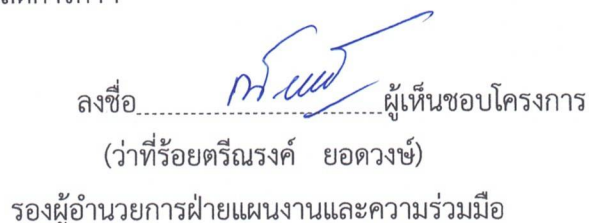 ลงชื่อ........................ผู้เห็นชอบโครงการ
(ว่าที่ร้อยตรีณรงค์ ยอดวงษ์)
รองผู้อำนวยการฝ่ายแผนงานและความร่วมมือ